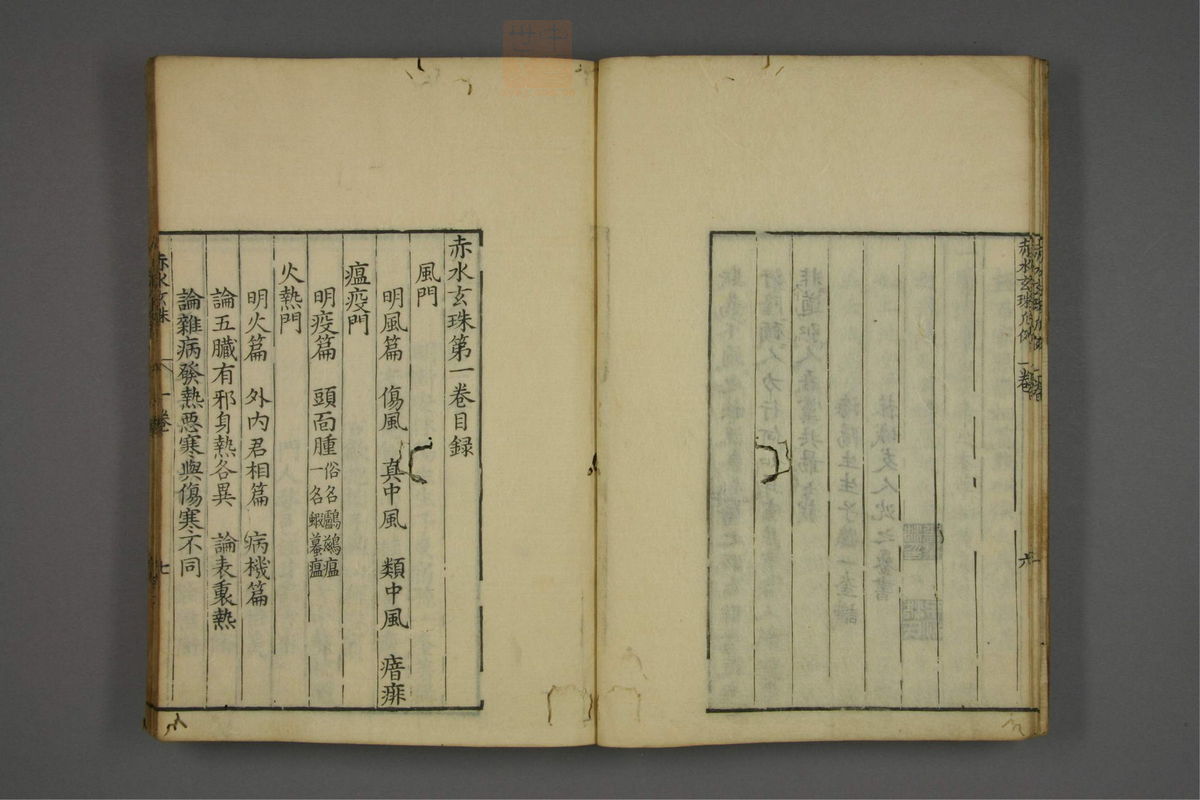 赤水玄珠凡例 一卷 六
赤水玄珠第一卷目録
風門
明風篇 傷風 真中風 類中風 瘖痱
瘟疫門
明疫篇 頭面腫 俗名鸕鷀瘟 一名蝦蟇瘟
火熱門
明火篇 外内君相篇 病機篇
論五臟有邪身熱各異 論表裏熱
論雜病發熱惡寒與傷寒不同
赤水玄珠 一卷 七